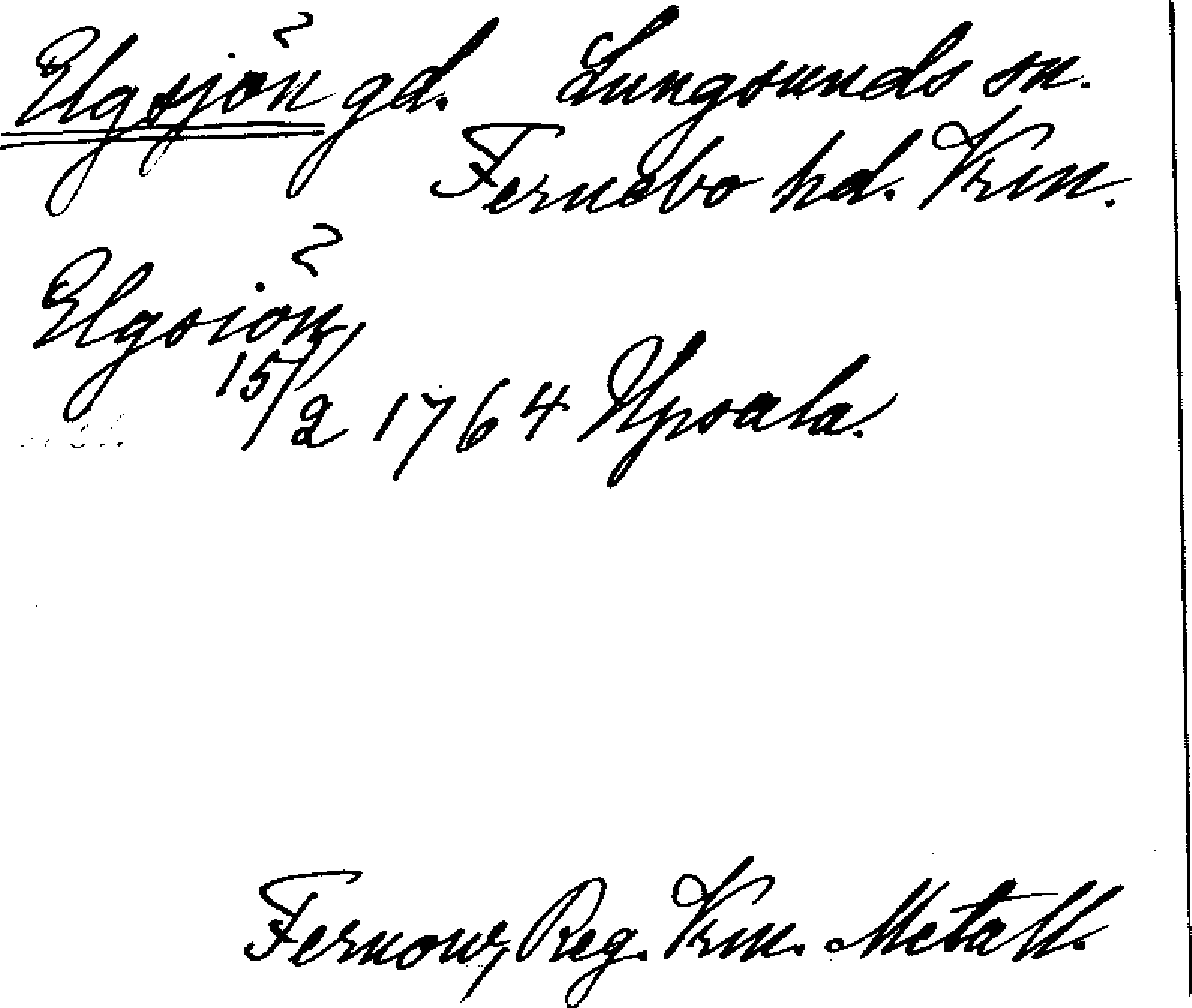 Elgsjön gd. Lungsunds sn.
Fernebo hd. Vrm.
Elgsiön,
15/2 1764 Upsala.
Fernow, Reg. Vrm. Metall.